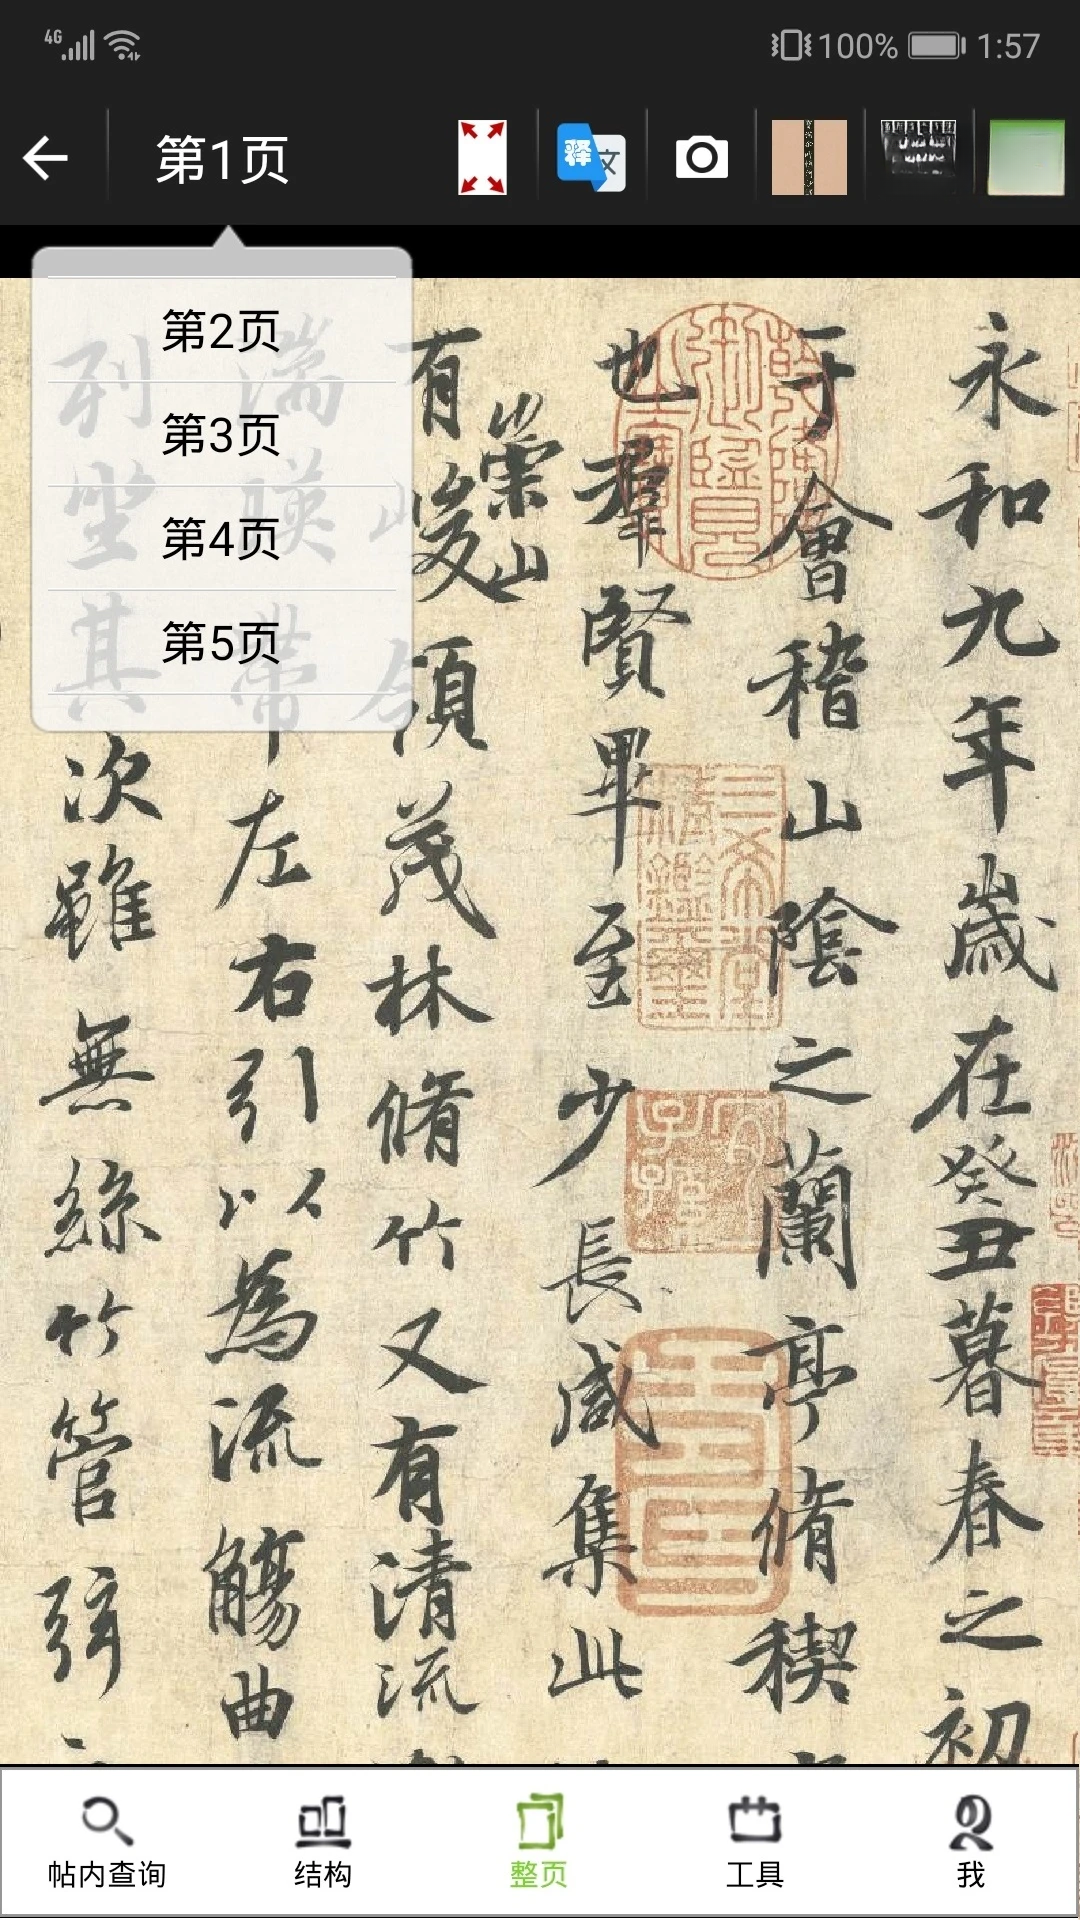 4G
100%
1:57
第1页
释
文
第2页
第3页
第4页
第5页
永和九年歲在癸丑暮春之初
于會稽山陰之蘭亭脩稧
也羣賢畢至少長咸集此
崇山
有峻領茂林脩竹又有清流
湍暎帶左右引以為流觴曲
列坐其次雖無絲竹管弦
帖内查询
结构
整页
工具
我